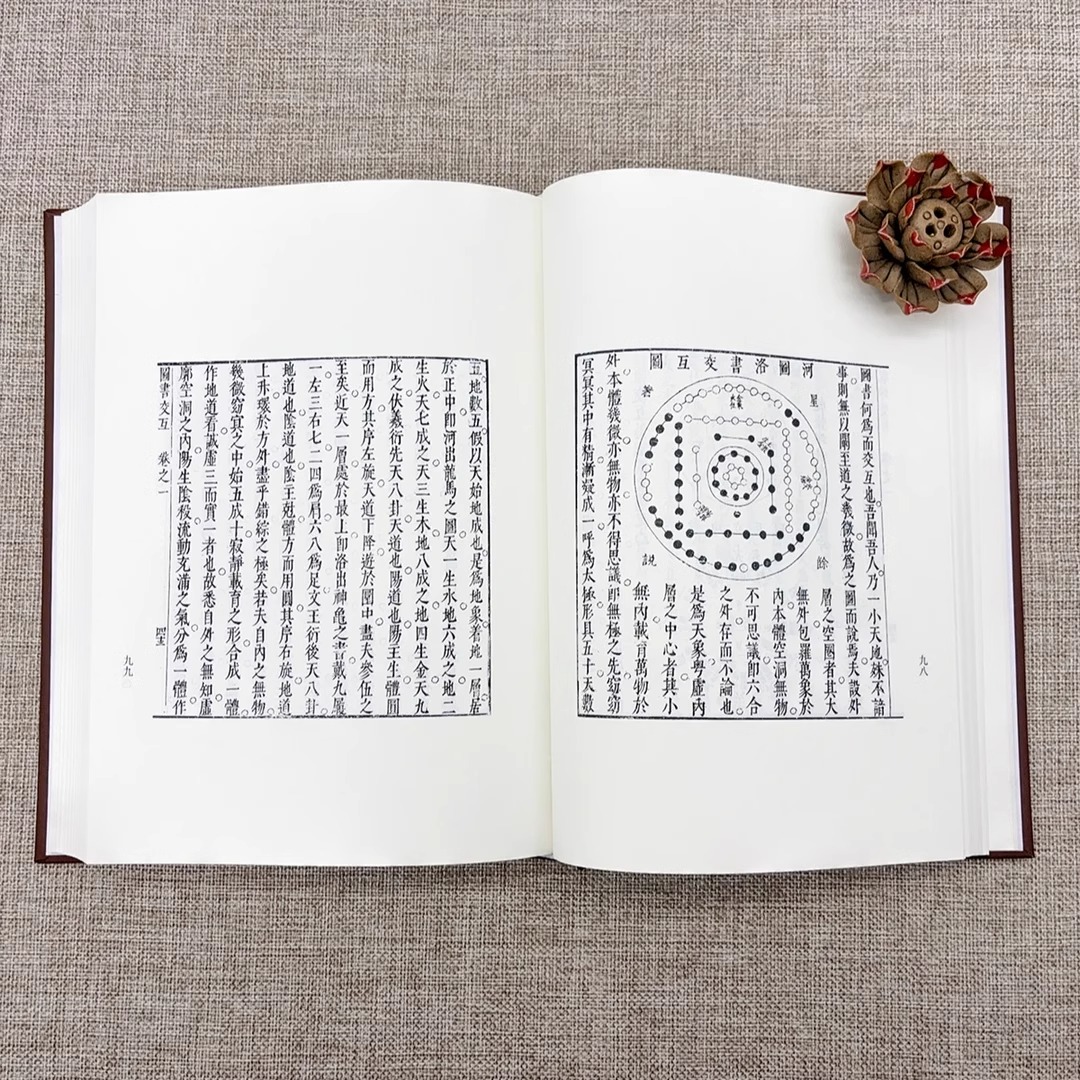 圖書何爲而交互也吾聞吾人乃一小天地殊不諳
事則無以闡至道之義微故爲之圖而說焉天設外
河圖洛書交互圖
星
餘
著
說
層之空圈者其大
無外包羅萬象於
內本體空洞無物
不可思議即六合
之外存而不論也
是爲天象粤虛內
層之中心者其小
無內載育萬物於
外本體幾微亦無物亦不得思議即無極之先窈窈
冥冥其中有精漸凝成一呼爲太極形具五十天數
九八
五地數五假以天始地成也是爲地象著地一層居
於正中即河出龍馬之圖天一生水地六成之地二
生火天七成之天三生木地八成之地四生金天九
成之伏羲衍先天八卦天道也陽道也陽主生體圓
而用方其序左旋天道下降遊於圈中盡夫參伍之
至矣近天一層處於最上即洛出神龜之書戴九履
一左三右七二四爲肩六八爲足文王衍後天八卦
地道也陰道也陰主尅體方而用圓其序右旋地道
上升環於方外盡乎錯綜之極矣若夫自內之無物
幾微窈冥之中始五成十寂靜載育之形合成一體
作地道看誠虛三而實一者也故悉自外之無知虛
廓空洞之內陽生陰殺流動充滿之氣分爲一體作
圖書交互 卷之一
九九